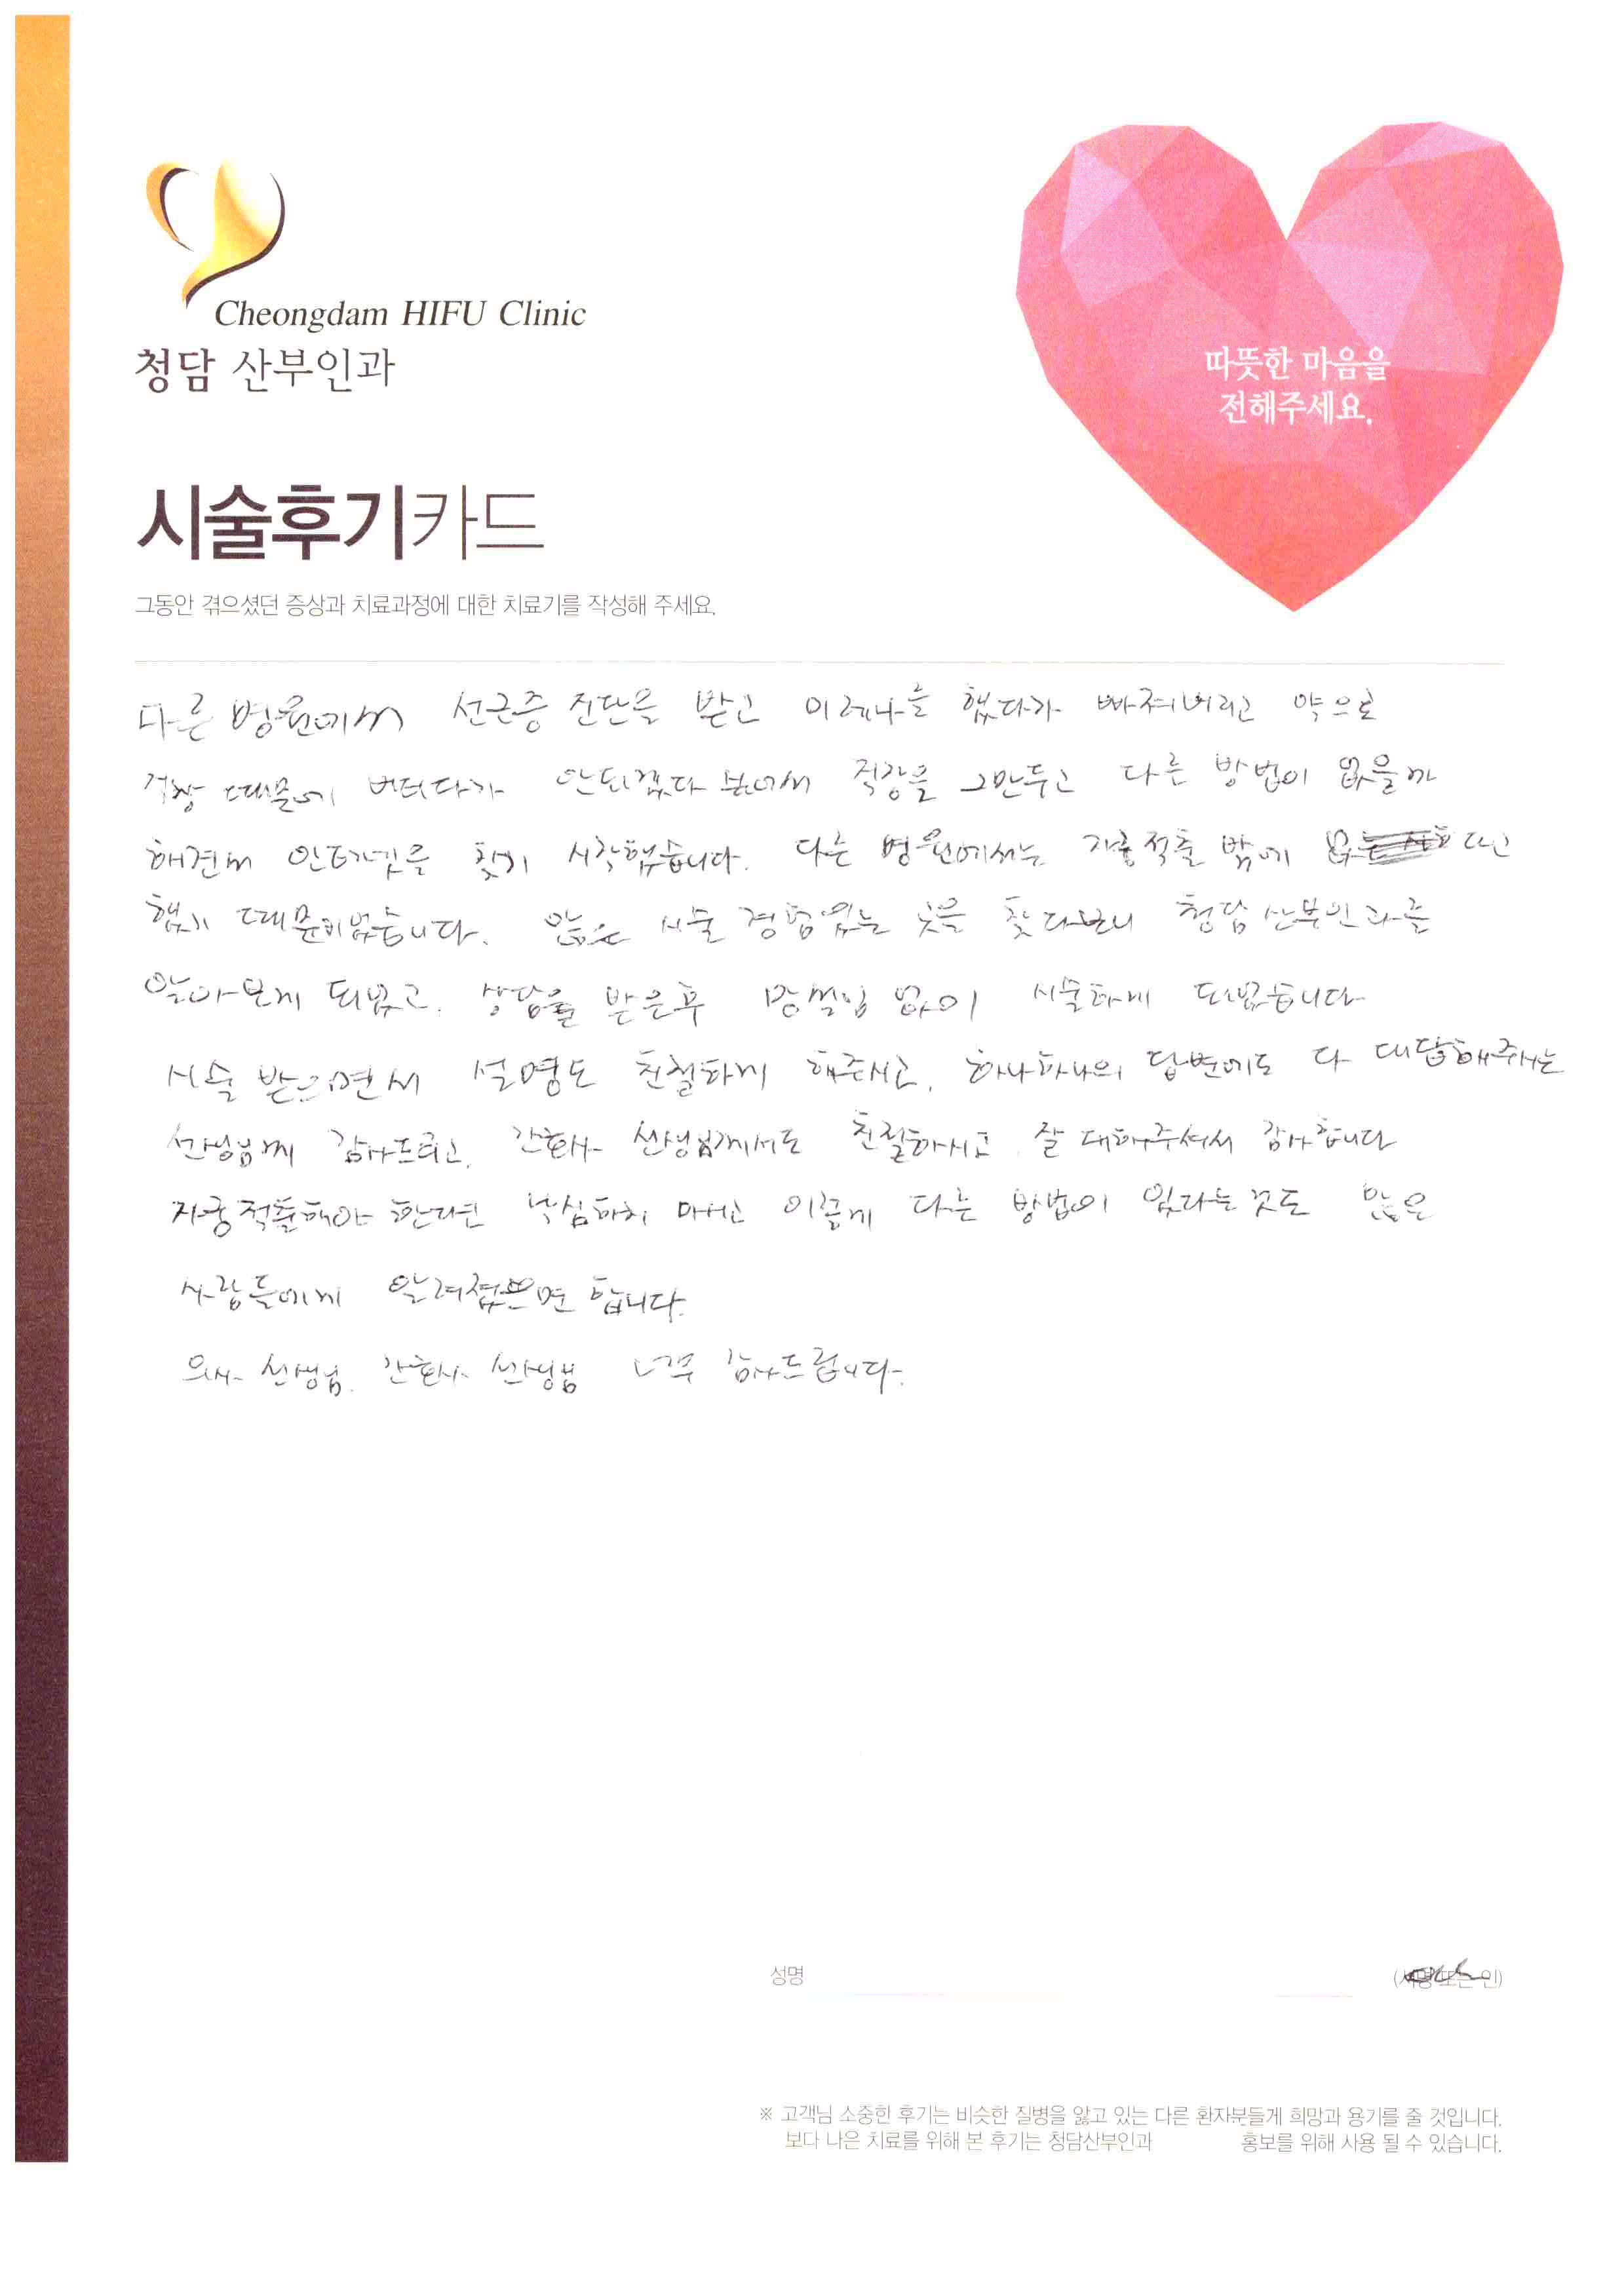 Cheongdam HIFU Clinic
청담 산부인과
따뜻한 마음을
전해주세요.
시술후기카드
그동안 겪으셨던 증상과 치료과정에 대한 치료기를 작성해 주세요.
다른 병원에서 선근증 진단을 받고 미레나를 했다가 빠져버리고 약으로
직장 때문에 버티다가 안되겠다 싶어서 직장을 그만두고 다른 방법이 없을까
해면서 인터넷을 찾기 시작했습니다. 다른 병원에서는 자궁적출 밖에 없 다고
했기 때문이었습니다. 많은 시술 경험있는 곳을 찾다보니 청담 산부인과를
알아보게 되었고, 상담을 받은후 망설임 없이 시술하게 되었습니다
시술 받으면서 설명도 친절하게 해주시고, 하나하나의 답변에도 다 대답해주시는
선생님께 감사드리고, 간호사 선생님께서도 친절하시고 잘 대해주셔서 감사합니다
자궁적출해야 한다면 낙심하지 마시고 이렇게 다른 방법이 있다는것도 많은
사람들에게 알려졌으면 합니다.
의사 선생님, 간호사 선생님 너무 감사드립니다.
성명
(서명 또는 인)
※ 고객님 소중한 후기는 비슷한 질병을 앓고 있는 다른 환자분들게 희망과 용기를 줄 것입니다.
보다 나은 치료를 위해 본 후기는 청담산부인과 홍보를 위해 사용 될 수 있습니다.